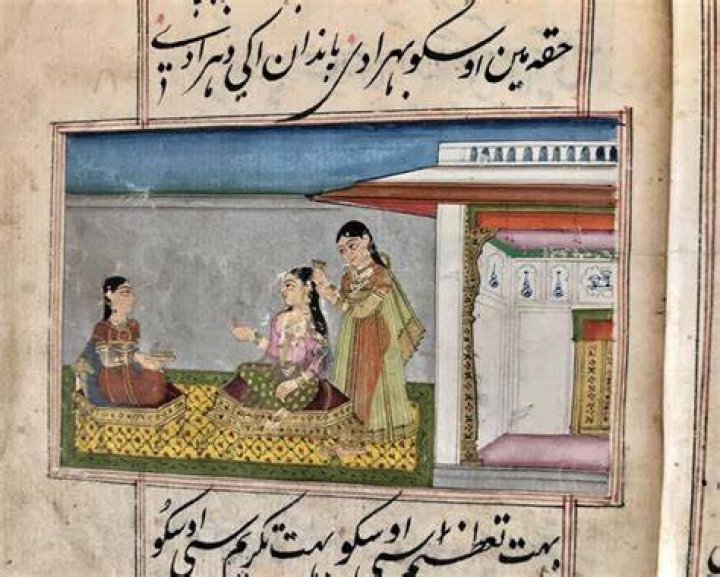 حقہ مین اوسکو بہرا دی پاندان اکی دہرا دی
بہت تعظیم سی اوسکو بہت تکریم سی اوسکو